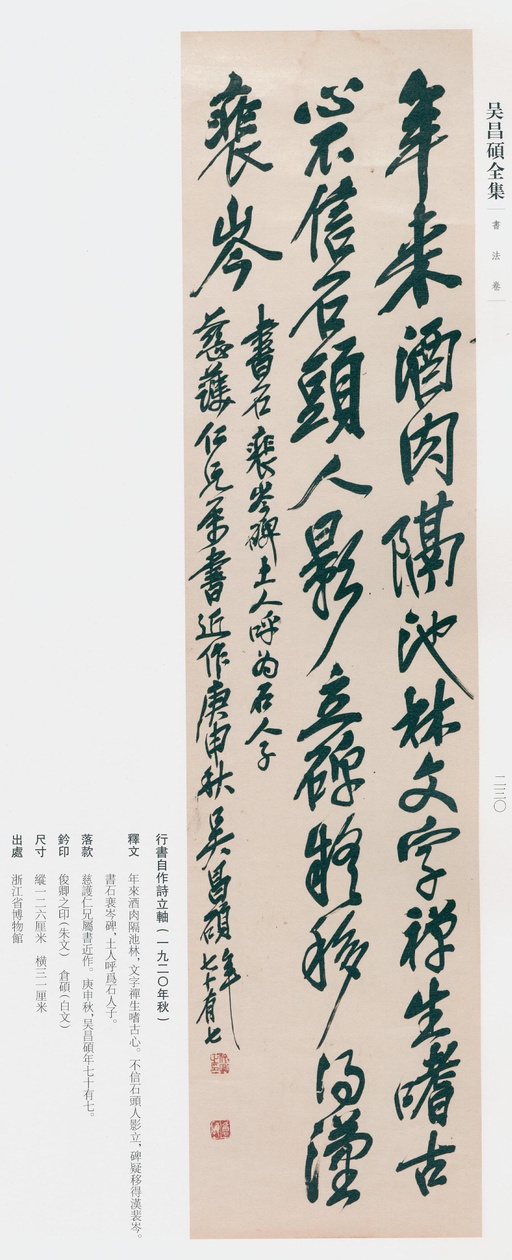 吴昌碩全集
書法卷
二二〇
年來酒肉隔池林文字禪生嗜古
心不信石頭人影立碑疑移得漢
裴岑
書石裴岑碑土人呼為石人子
慈護仁兄屬書近作庚申秋吳昌碩年七十有七
俊卿之印
倉碩
行書自作詩立軸(一九二〇年秋)
釋文 年來酒肉隔池林,文字禪生嗜古心。不信石頭人影立,碑疑移得漢裴岑。
書石裴岑碑,土人呼爲石人子。
落款 慈護仁兄屬書近作。庚申秋,吳昌碩年七十有七。
鈐印 俊卿之印(朱文) 倉碩(白文)
尺寸 縱一二六厘米 橫三一厘米
出處 浙江省博物館